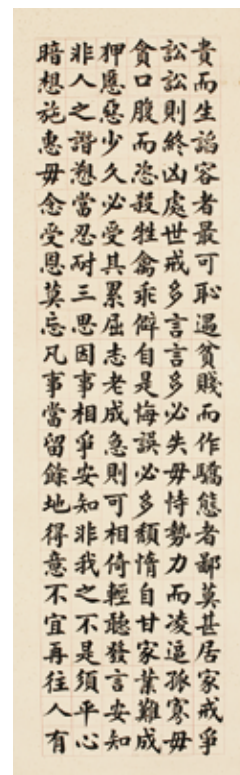 貴而生諂容者最可恥遇貧賤而作驕態者鄙莫甚居家戒爭
訟訟則終凶處世戒多言言多必失毋恃勢力而凌逼孤寡毋
貪口腹而恣殺牲禽乖僻自是悔誤必多頹惰自甘家業難成
狎慝惡少久必受其累屈志老成急則可相倚輕聽發言安知
非人之譖愬當忍耐三思因事相爭安知非我之不是須平心
暗想施惠毋念受恩莫忘凡事當留餘地得意不宜再往人有